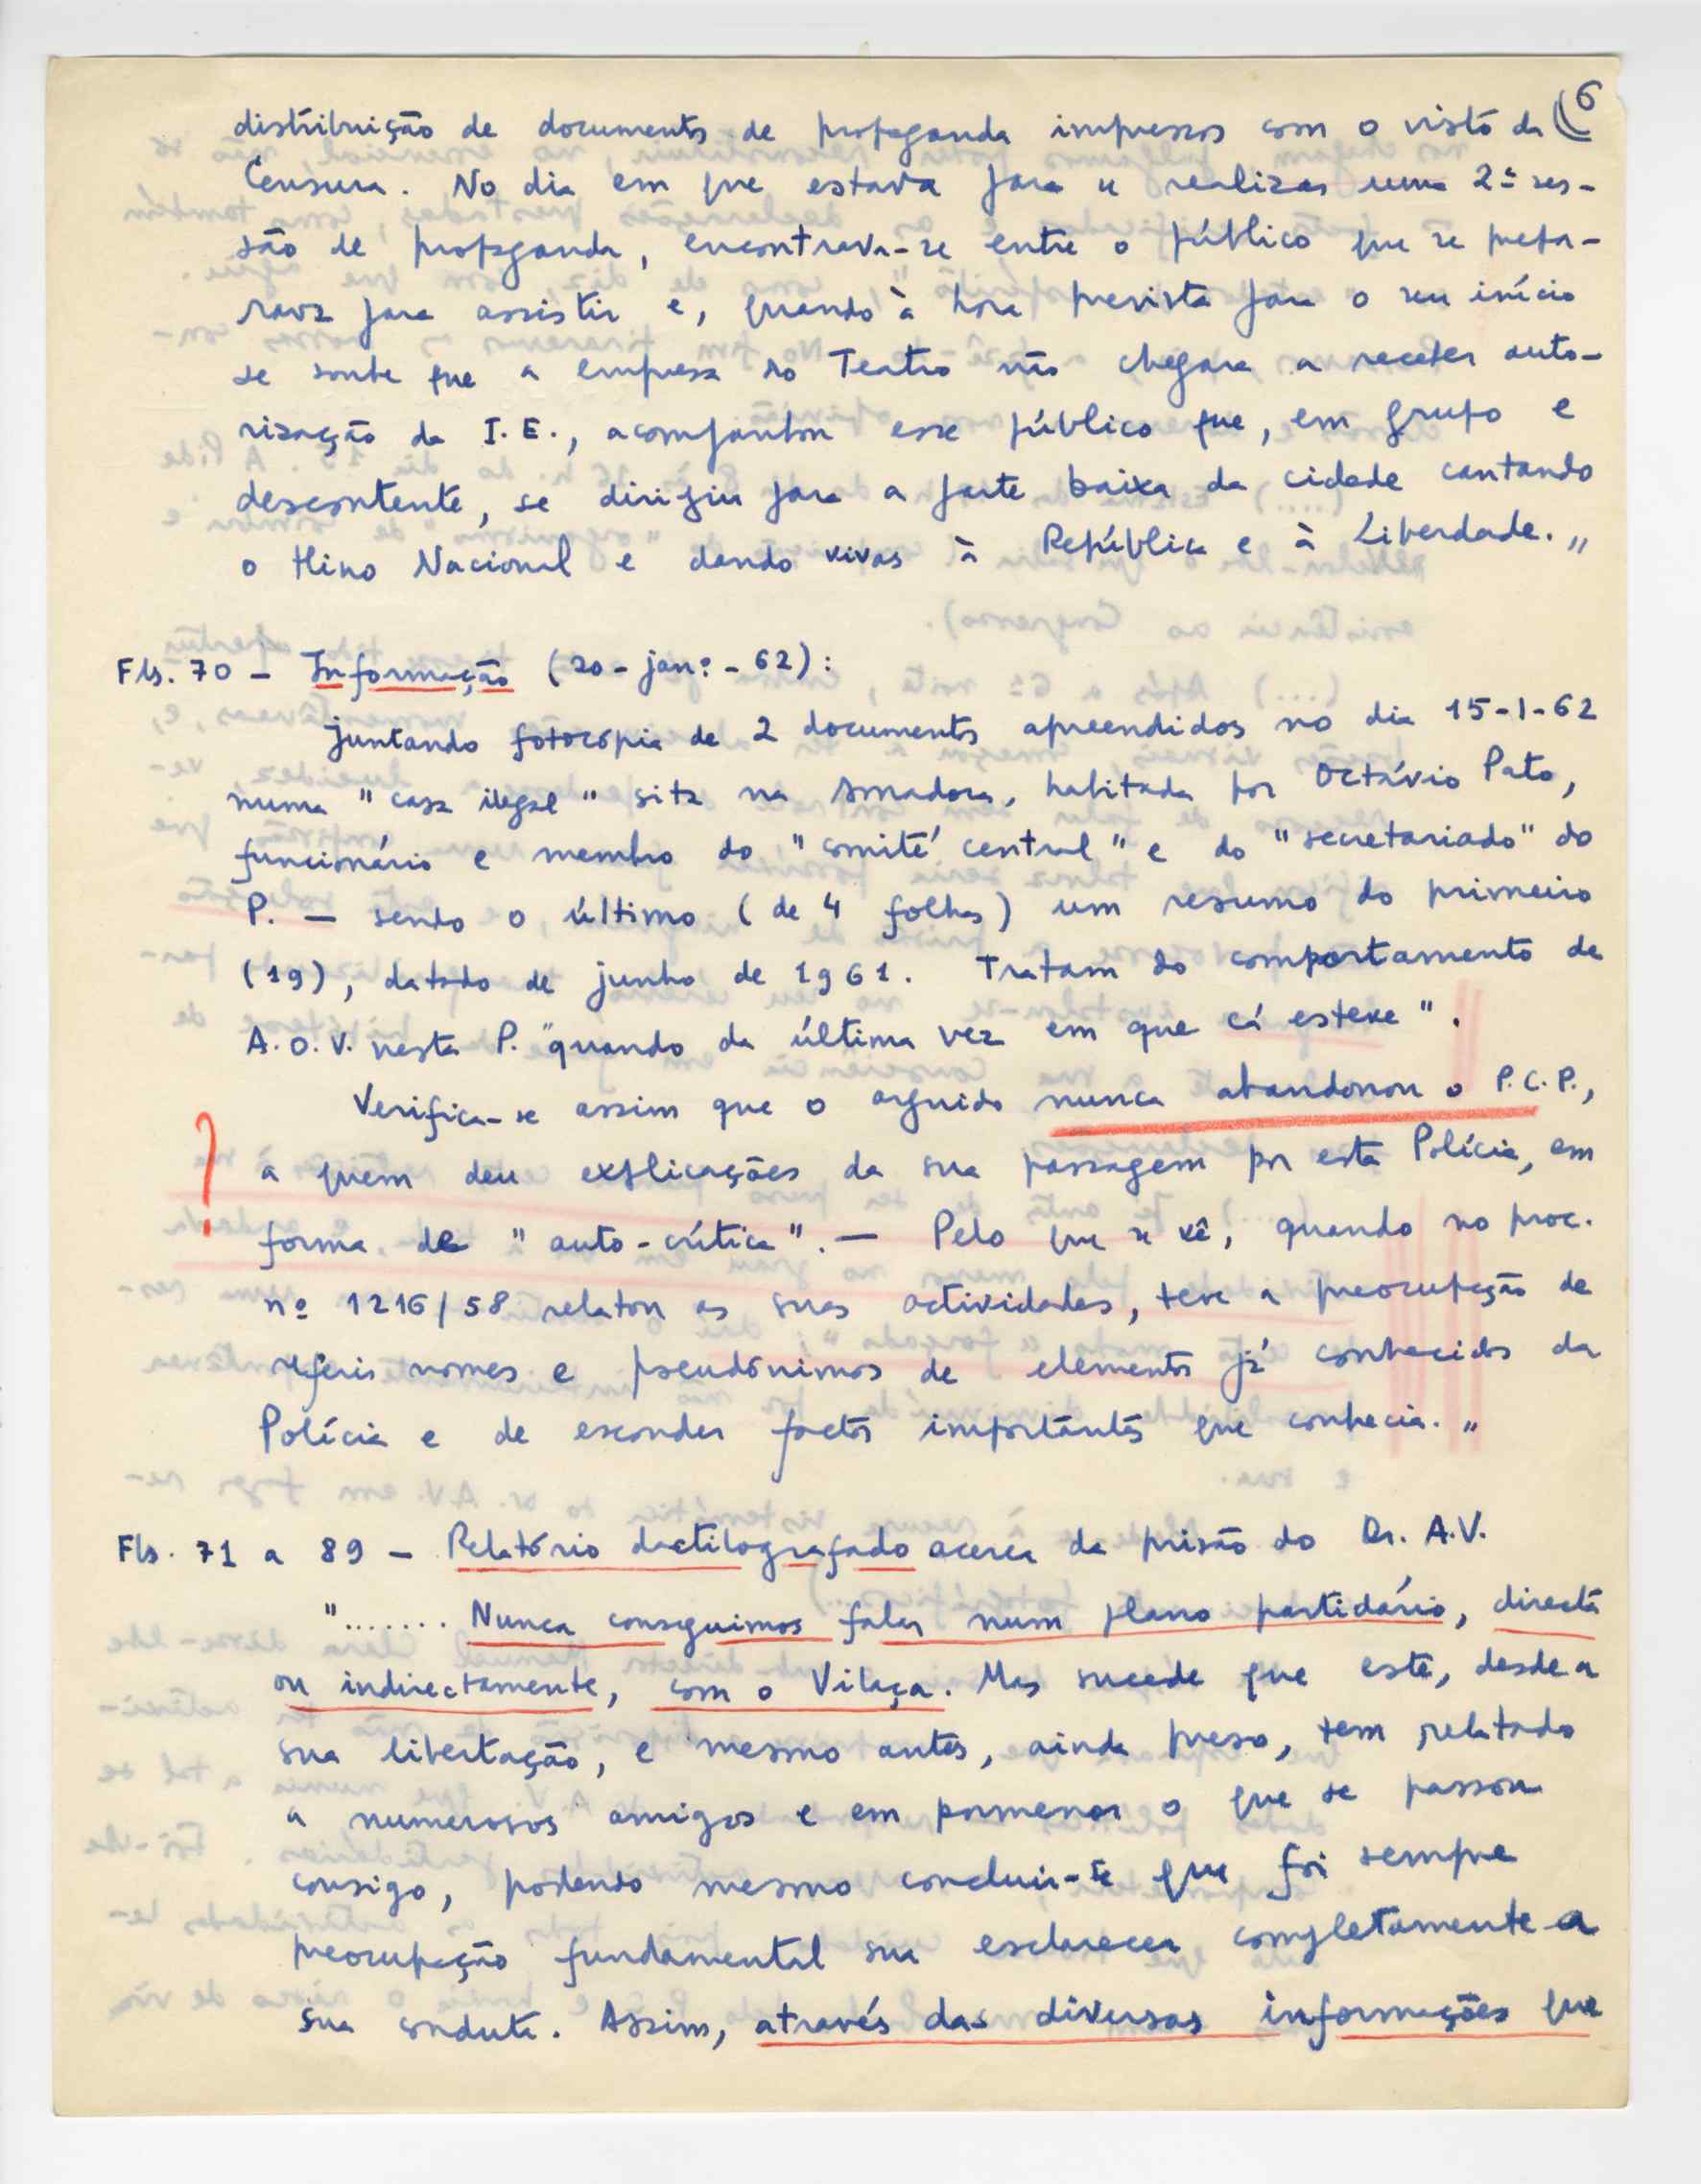 6
distribuição de documentos de propaganda impressos com o visto da
Censura. No dia em que estava para se realizar uma 2ª ses-
são de propaganda, encontrava-se entre o público que se prepa-
rava para assistir e, quando à hora prevista para o seu início
se soube que a empresa do Teatro não chegara a receber auto-
rização da I.E., acompanhou esse público que, em grupo e
descontente, se dirigiu para a parte baixa da cidade cantando
o Hino Nacional e dando vivas à República e à Liberdade."
Fls. 70 - Informação (20-janº-62):
Juntando fotocópia de 2 documentos apreendidos no dia 15-1-62
numa "casa ilegal" sita na Amadora, habitada por Octávio Pato,
funcionário e membro do "comité central" e do "secretariado" do
P. — sendo o último (de 4 folhas) um resumo do primeiro
(19), datado de junho de 1961. Tratam do comportamento de
A.O.V. nesta P. "quando da última vez em que cá esteve".
Verifica-se assim que o arguido nunca abandonou o P.C.P.,
? a quem deu explicações da sua passagem por esta Polícia, em
forma de "auto-crítica". — Pelo que se vê, quando no proc.
nº 1216/58 relatou as suas actividades, teve a preocupação de
referir nomes e pseudónimos de elementos já conhecidos da
Polícia e de esconder factos importantes que conhecia."
Fls. 71 a 89 - Relatório dactilografado acerca da prisão do Dr. A.V.
"....... Nunca conseguimos falar num plano partidário, directa
ou indirectamente, com o Vilaça. Mas sucede que este, desde a
sua libertação, e mesmo antes, ainda preso, tem relatado
a numerosos amigos e em pormenor o que se passou
consigo, podendo mesmo concluir-se que foi sempre
preocupação fundamental sua esclarecer completamente a
sua conduta. Assim, através das diversas informações que